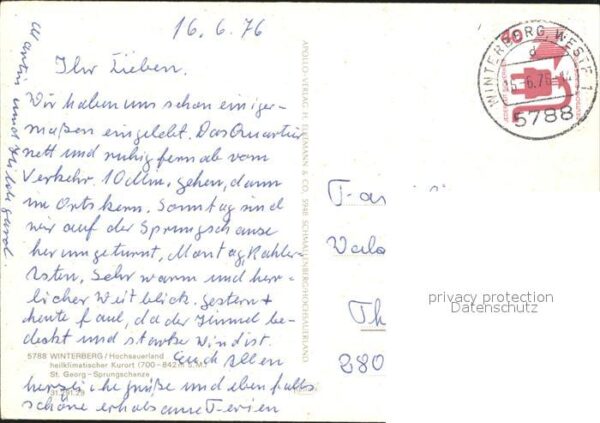 16.6.76
Ihr Lieben.
Wir haben uns schon einiger-
maßen eingelebt. Das Quartier
nett und ruhig fern ab vom
Verkehr. 10 Min. gehen, dann
im Ortskern. Sonntag sind
wir auf der Sprungschanze
herumgeturnt, Montag, Kahler
Asten, sehr warm und herr-
licher Weitblick. gestern +
heute faul, da der Himmel be-
deckt und starker Wind ist.
Euch allen
herzliche grüße und ebenfalls
schöne erholsame Ferien
Martin und
APOLLO-VERLAG H. & CO. 5948 SCHMALLENBERG/HOCHSAUERLAND
5788 WINTERBERG / Hochsauerland
heilklimatischer Kurort (700-842 m ü. M.)
St. Georg-Sprungschanze
WINTERBERG, WESTF 1
d
16.-6.76-14
5788
T-
Th
280
privacy protection
Datenschutz